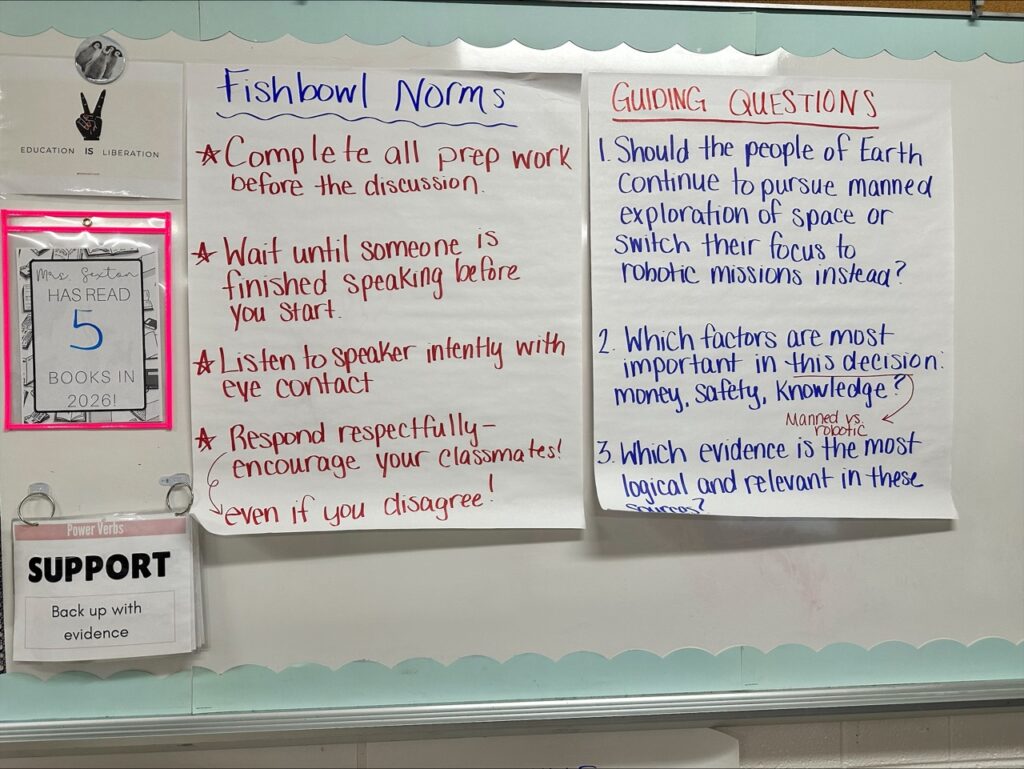 EDUCATION IS LIBERATION
Mrs. Sexton
HAS READ
5
BOOKS IN
2026!
Power Verbs
SUPPORT
Back up with
evidence
Fishbowl Norms
☆ Complete all prep work
before the discussion.
☆ Wait until someone is
finished speaking before
you start.
☆ Listen to speaker intently with
eye contact
☆ Respond respectfully–
encourage your classmates!
even if you disagree!
GUIDING QUESTIONS
1. Should the people of Earth
continue to pursue manned
exploration of space or
switch their focus to
robotic missions instead?
2. Which factors are most
important in this decision:
money, safety, knowledge?
Manned vs.
robotic
3. Which evidence is the most
logical and relevant in these
sources?